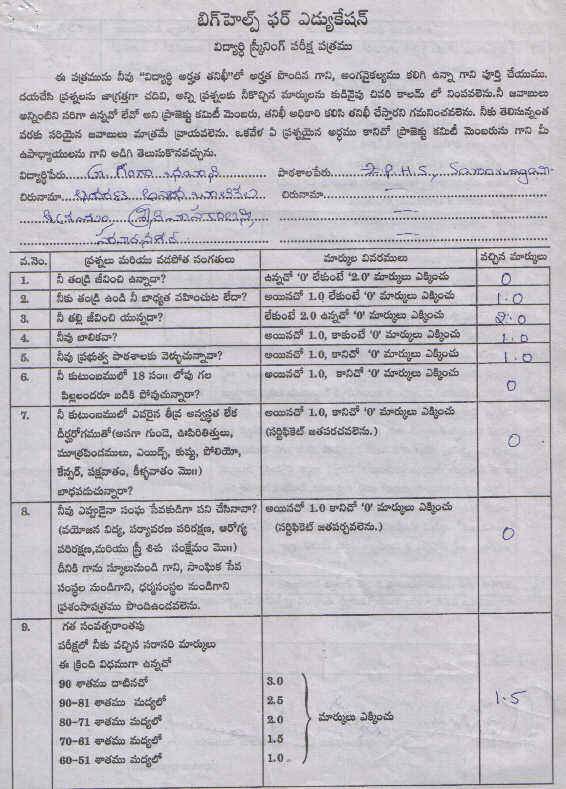 బిగ్‌హెల్ప్ ఫర్ ఎడ్యుకేషన్
విద్యార్థి స్క్రీనింగ్ పరీక్ష పత్రము
ఈ పత్రమును నీవు "విద్యార్థి అర్హత తనిఖీ"లో అర్హత పొందిన గాని, అంగవైకల్యము కలిగి ఉన్నా గాని పూర్తి చేయుము.
దయచేసి ప్రశ్నలను జాగ్రత్తగా చదివి, అన్ని ప్రశ్నలకు నీకొచ్చిన మార్కులను కుడివైపు చివరి కాలమ్ లో నింపవలెను.నీ జవాబులు
అన్నింటిని సరిగా ఉన్నదో లేవో అని ప్రాజెక్టు కమిటీ మెంబరు, తనిఖీ అధికారి కలిసి తనిఖీ చేస్తారని గమనించవలెను. నీకు తెలిసున్నంత
వరకు సరియైన జవాబులు మాత్రమే వ్రాయవలెను. ఒకవేళ ఏ ప్రశ్నయైన అర్థము కానిచో ప్రాజెక్టు కమిటీ మెంబరును గాని మీ
ఉపాధ్యాయులను గాని అడిగి తెలుసుకొనవచ్చును.
విద్యార్థిపేరు గంగా భవాని పాఠశాలపేరు Z.P.H.S.,
చిరునామా చిరునామా
వ.నెం. ప్రశ్నలు మరియు వడపోత సంగతులు మార్కుల వివరములు వచ్చిన మార్కులు
1. నీ తండ్రి జీవించి ఉన్నాడా? ఉన్నచో '0' లేకుంటే '2.0' మార్కులు ఎక్కించు 0
2. నీకు తండ్రి ఉండి నీ బాధ్యత వహించుట లేదా? అయినచో 1.0 లేకుంటే '0' మార్కులు ఎక్కించు 1.0
3. నీ తల్లి జీవించి యున్నదా? లేకుంటే 2.0 ఉన్నచో '0' మార్కులు ఎక్కించు 2.0
4. నీవు బాలికనా? అయినచో 1.0, కాకుంటే '0' మార్కులు ఎక్కించు 1.0
5. నీవు ప్రభుత్వ పాఠశాలకు వెళ్ళుచున్నావా? అయినచో 1.0, కానిచో '0' మార్కులు ఎక్కించు 1.0
6. నీ కుటుంబములో 18 సం॥ లోపు గల అయినచో 1.0, కానిచో '0' మార్కులు ఎక్కించు 0
పిల్లలందరూ బడికి పోవుచున్నారా?
7. నీ కుటుంబములో ఎవరైన తీవ్ర అస్వస్థత లేక అయినచో 1.0, కానిచో '0' మార్కులు ఎక్కించు 0
దీర్ఘరోగముతో(అనగా గుండె, ఊపిరితిత్తులు, (సర్టిఫికెట్ జతపరచవలెను.)
మూత్రపిండములు, ఎయిడ్స్, కుష్టు, పోలియో,
కేన్సర్, పక్షవాతం, కీళ్ళవాతం మొ॥)
బాధపడుచున్నారా?
8. నీవు ఎప్పుడైనా సంఘ సేవకుడిగా పని చేసినావా? అయినచో 1.0 కానిచో '0' మార్కులు ఎక్కించు 0
(వయోజన విద్య, పర్యావరణ పరిరక్షణ, ఆరోగ్య (సర్టిఫికెట్ జతపర్చవలెను.)
పరిరక్షణ,మరియు స్త్రీ శిశు సంక్షేమం మొ॥)
దీనికి గాను స్కూలునుండి గాని, సాంఘిక సేవ
సంస్థల నుండిగాని, ధర్మసంస్థల నుండిగాని
ప్రశంసాపత్రము పొందిఉండవలెను.
9. గత సంవత్సరాంతపు
పరీక్షలో నీకు వచ్చిన సరాసరి మార్కులు
ఈ క్రింది విధముగా ఉన్నచో
90 శాతము దాటినచో 3.0
90-81 శాతము మద్యలో 2.5 1.5
80-71 శాతము మద్యలో 2.0 మార్కులు ఎక్కించు
70-61 శాతము మద్యలో 1.5
60-51 శాతము మద్యలో 1.0